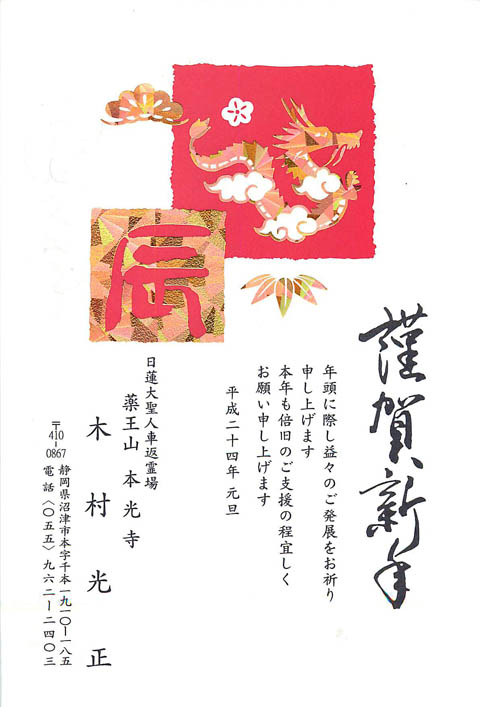 辰
謹賀新年
年頭に際し益々のご発展をお祈り
申し上げます
本年も倍旧のご支援の程宜しく
お願い申し上げます
平成二十四年 元旦
日蓮大聖人車返霊場
薬王山 本光寺
木村光正
〒410-0867 静岡県沼津市本字千本一九一〇ー一八五
電話〈〇五五〉九六二ー二四〇三